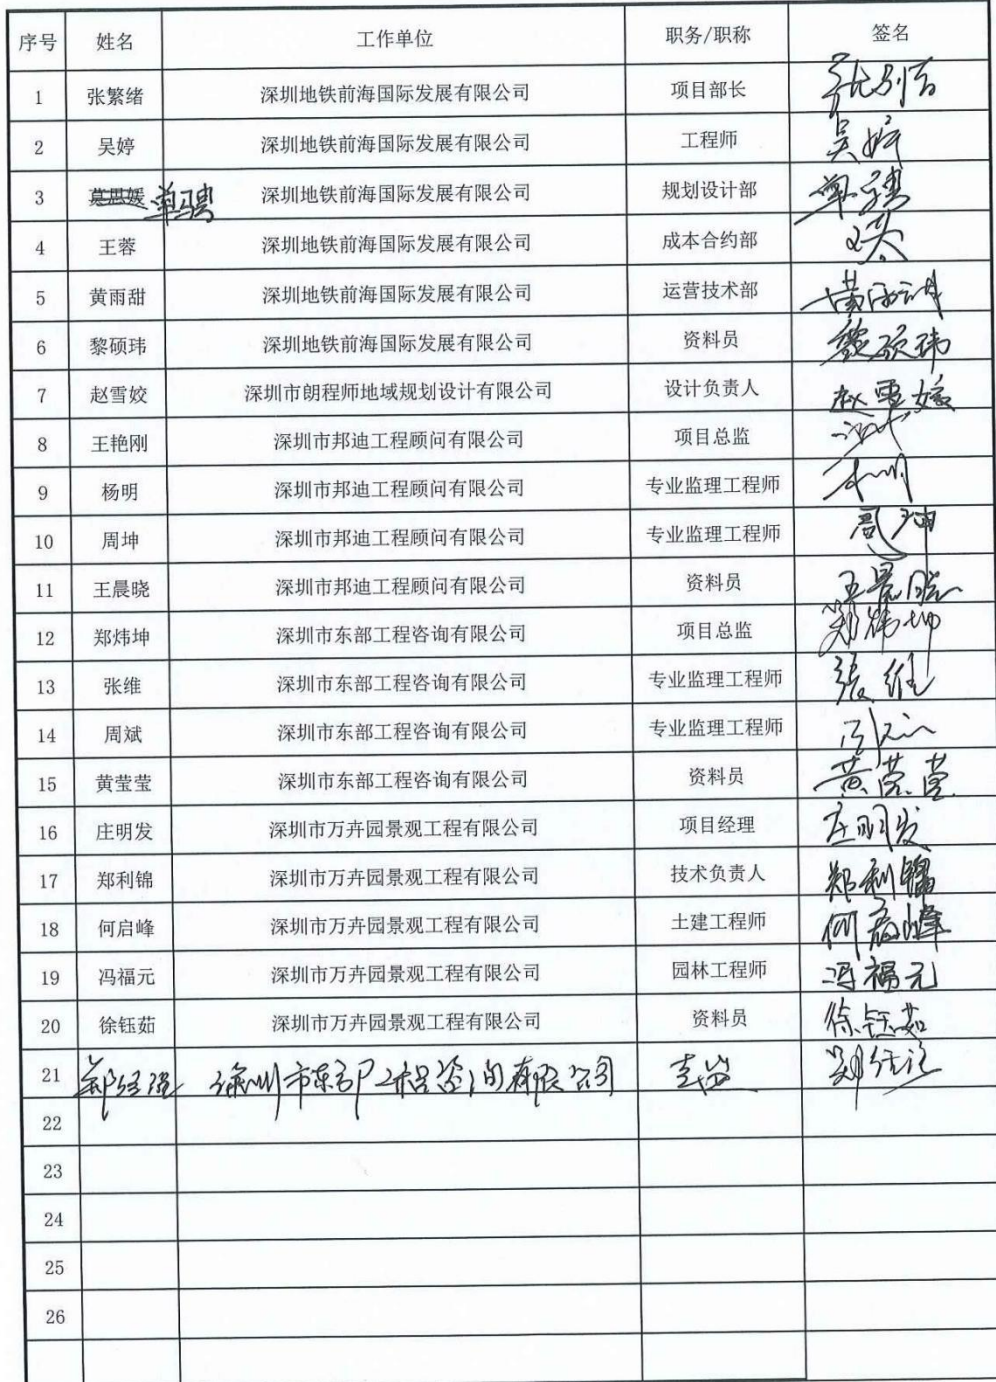 序号 姓名 工作单位 职务/职称 签名
1 张繁绪 深圳地铁前海国际发展有限公司 项目部长
2 吴婷 深圳地铁前海国际发展有限公司 工程师 吴婷
3 莫思媛 单骋 深圳地铁前海国际发展有限公司 规划设计部 单骋
4 王蓉 深圳地铁前海国际发展有限公司 成本合约部 王蓉
5 黄雨甜 深圳地铁前海国际发展有限公司 运营技术部 黄雨甜
6 黎硕玮 深圳地铁前海国际发展有限公司 资料员 黎硕玮
7 赵雪姣 深圳市朗程师地域规划设计有限公司 设计负责人 赵雪姣
8 王艳刚 深圳市邦迪工程顾问有限公司 项目总监
9 杨明 深圳市邦迪工程顾问有限公司 专业监理工程师 杨明
10 周坤 深圳市邦迪工程顾问有限公司 专业监理工程师 周坤
11 王晨晓 深圳市邦迪工程顾问有限公司 资料员 王晨晓
12 郑炜坤 深圳市东部工程咨询有限公司 项目总监 郑炜坤
13 张维 深圳市东部工程咨询有限公司 专业监理工程师 张维
14 周斌 深圳市东部工程咨询有限公司 专业监理工程师
15 黄莹莹 深圳市东部工程咨询有限公司 资料员 黄莹莹
16 庄明发 深圳市万卉园景观工程有限公司 项目经理 庄明发
17 郑利锦 深圳市万卉园景观工程有限公司 技术负责人 郑利锦
18 何启峰 深圳市万卉园景观工程有限公司 土建工程师 何启峰
19 冯福元 深圳市万卉园景观工程有限公司 园林工程师 冯福元
20 徐钰茹 深圳市万卉园景观工程有限公司 资料员 徐钰茹
21 深圳市东部工程咨询有限公司
22
23
24
25
26